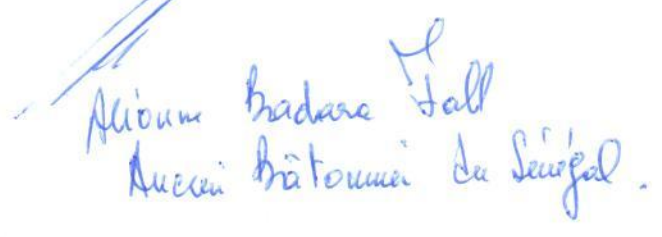 Alioune Badara Fall
Ancien Bâtonnier du Sénégal.